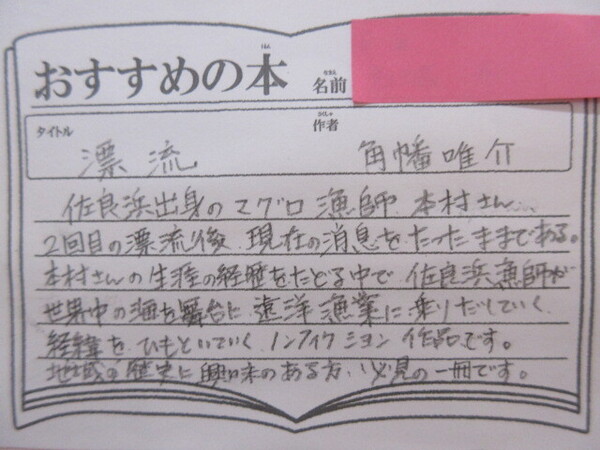 おすすめの本 名前
タイトル 作者
漂流 角幡唯介
佐良浜出身のマグロ漁師 本村さん…
2回目の漂流後、現在の消息をたったままである。
本村さんの生涯の経歴をたどる中で 佐良浜漁師が
世界中の海を舞台に遠洋漁業に乗りだしていく
経緯を ひもといていく ノンフィクション 作品です。
地域の歴史に興味のある方、必見の一冊です。